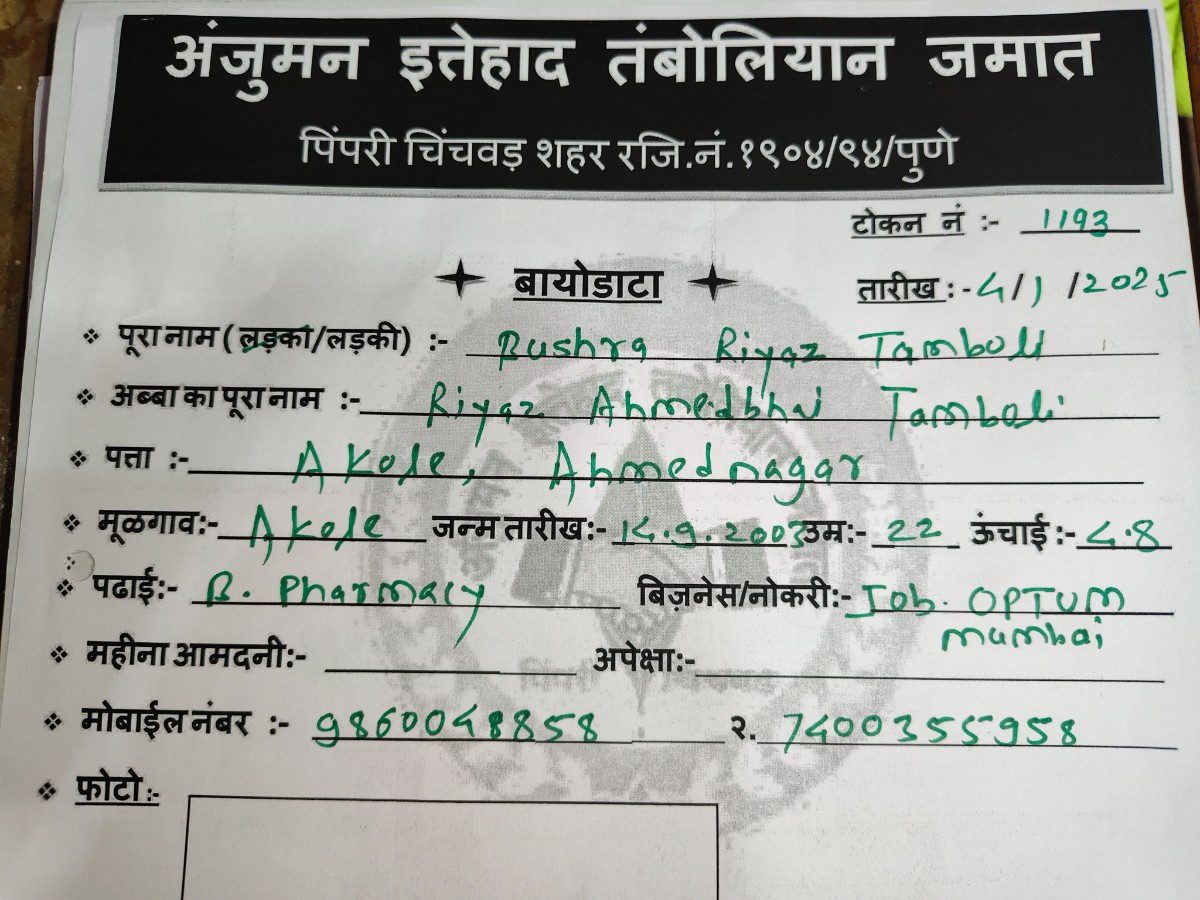 अंजुमन इत्तेहाद तंबोलियान जमात
पिंपरी चिंचवड़ शहर रजि.नं.१९०४/९४/पुणे
टोकन नं :- 1193
बायोडाटा
तारीख :- 4/1/2025
पूरा नाम (लड़का/लड़की) :- Bushra Riyaz Tamboli
अब्बा का पूरा नाम :- Riyaz Ahmedbhai Tamboli
पत्ता :- Akole, Ahmednagar
मूळगाव:- Akole जन्म तारीख:- 14.9.2003 उम्र:- 22 ऊंचाई :- 4.8
पढाई:- B. Pharmacy बिज़नेस/नोकरी:- Job. OPTUM
mumbai
महीना आमदनी:- अपेक्षा:-
मोबाईल नंबर :- 9860048858 २. 7400355958
फोटो:-